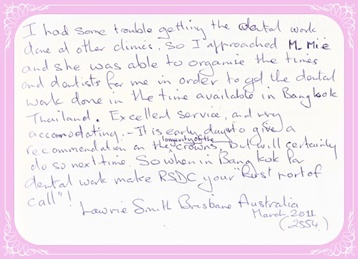 I had some trouble getting the dental work
done at other clinics. So I approached M. Mie
and she was able to organise the times
and dentists for me in order to get the dental
work done in the time available in Bangkok
Thailand. Excellent service, and very
accomodating. - It is early days to give a
recommendation on the longevity of the crowns, but will certainly
do so next time. So when in Bangkok for
dental work make RSDC your "first port of
call"!
Lawrie Smith Brisbane Australia
March 2011
(2554)